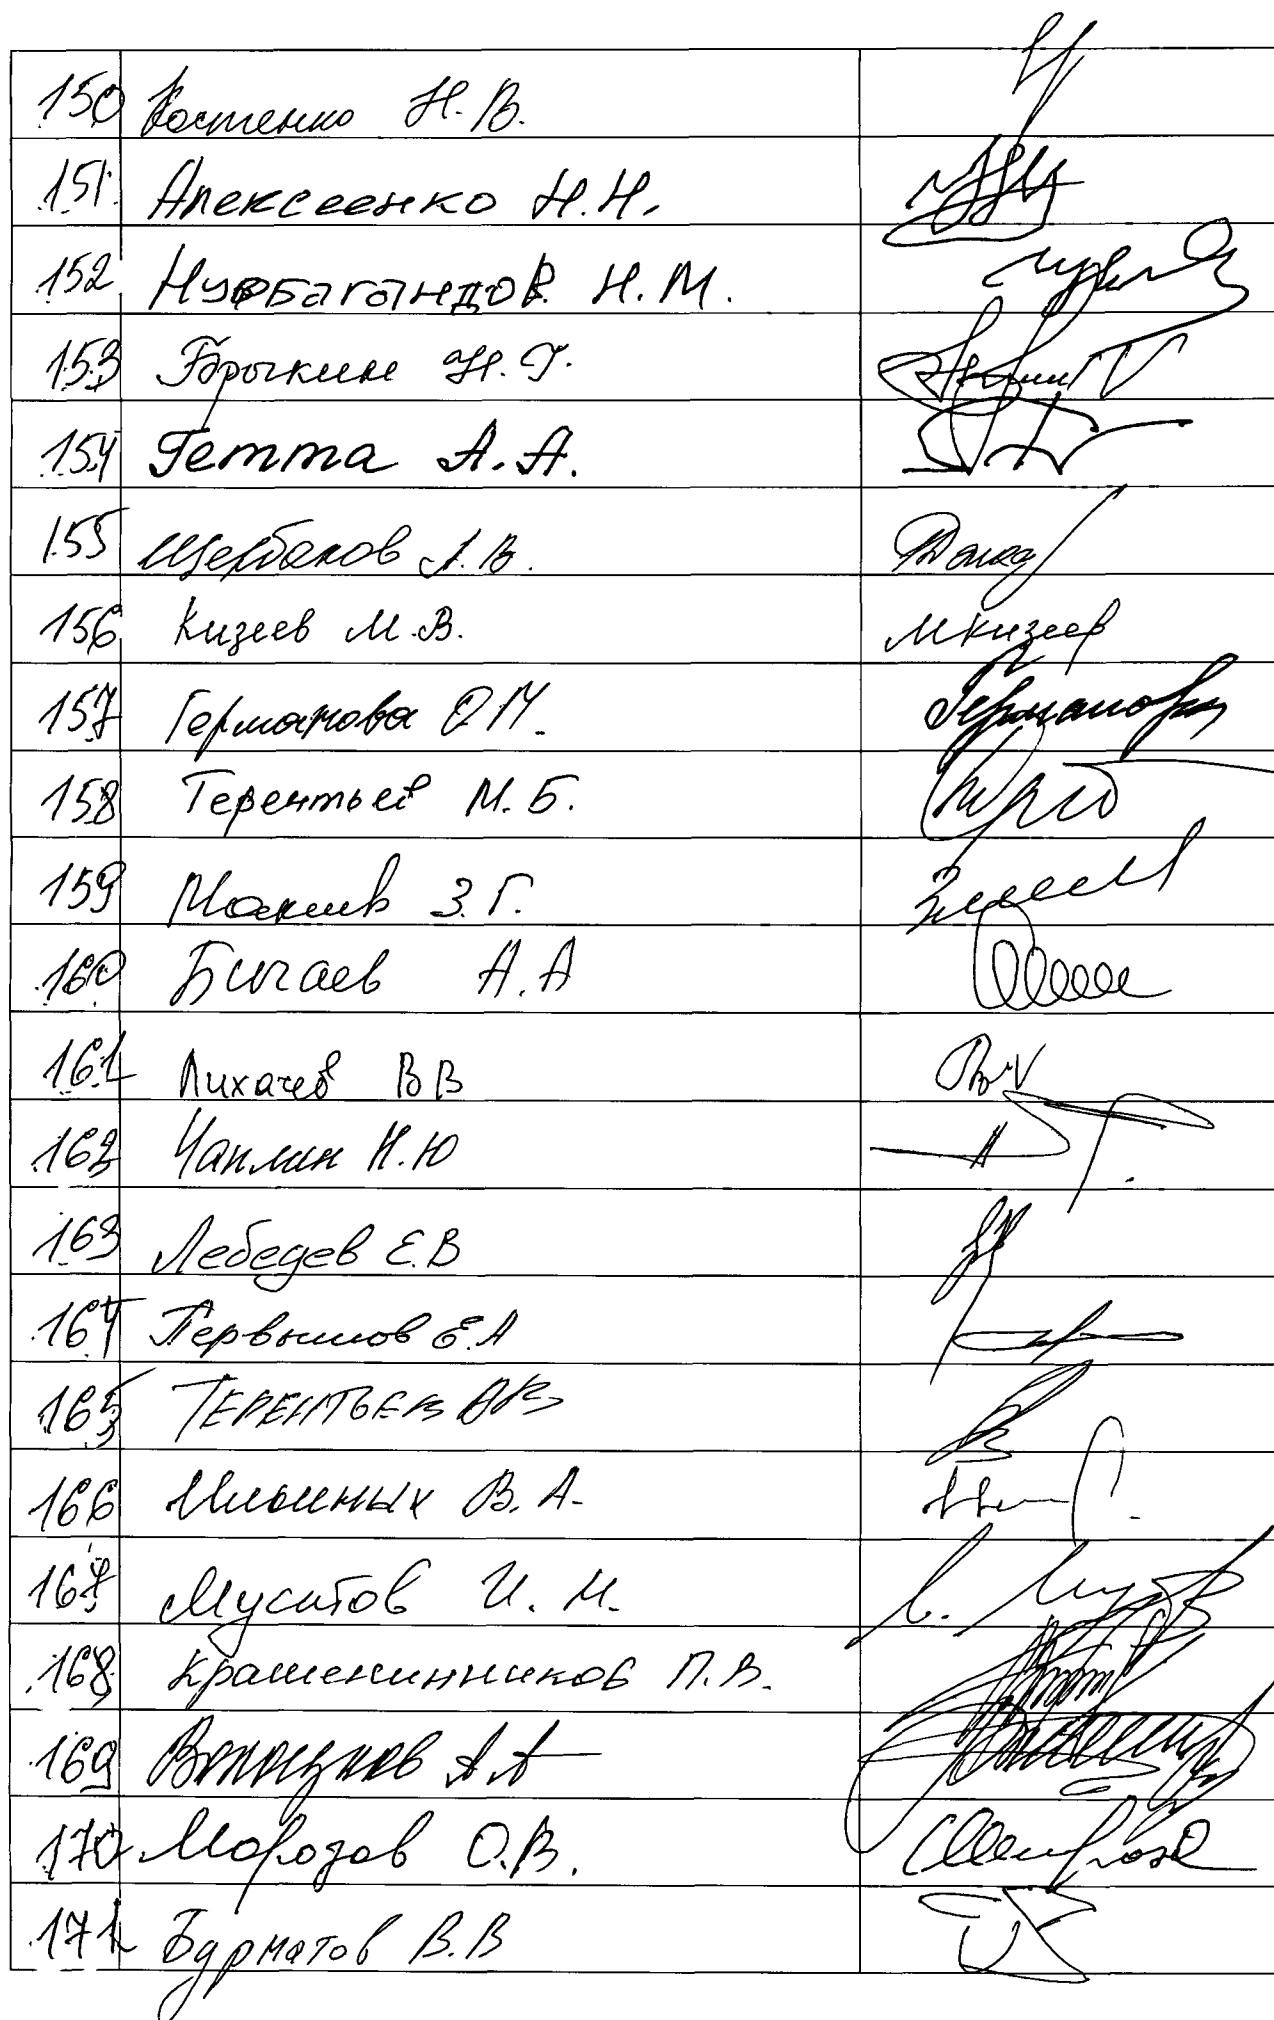 150 Костенко Н.В.
151. Алексеенко Н.Н.
152. Нурбагандов Н.М.
153 Брыкин Н.Г.
154 Гетта А.А.
155 Щербаков А.В.
156 Кизеев М.В. МКизеев
157 Германова О М. Германова
158 Терентьев М.Б.
159 Макиев З.Г.
160 Бичаев А.А
161 Лихачев В В
162 Чаплин Н.Ю
163 Лебедев Е.В
164 Первышов Е.А
165 ТЕРЕНТЬЕВ АВ
166 Ильиных В.А.
167 Мусатов И.М.
168 Крашенинников П.В.
169 А А
170 Морозов О.В.
171 Бурматов В.В